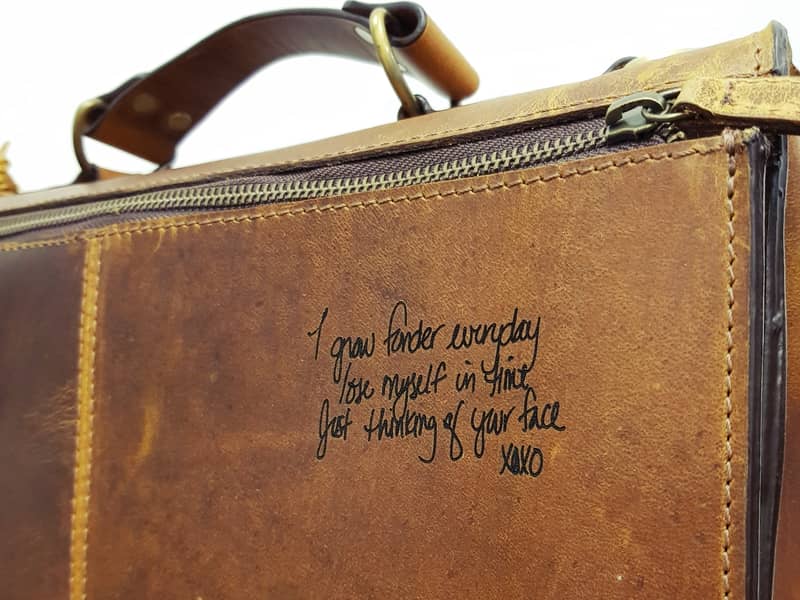 I grow fonder everyday
lose myself in time
Just thinking of your face
xoxo